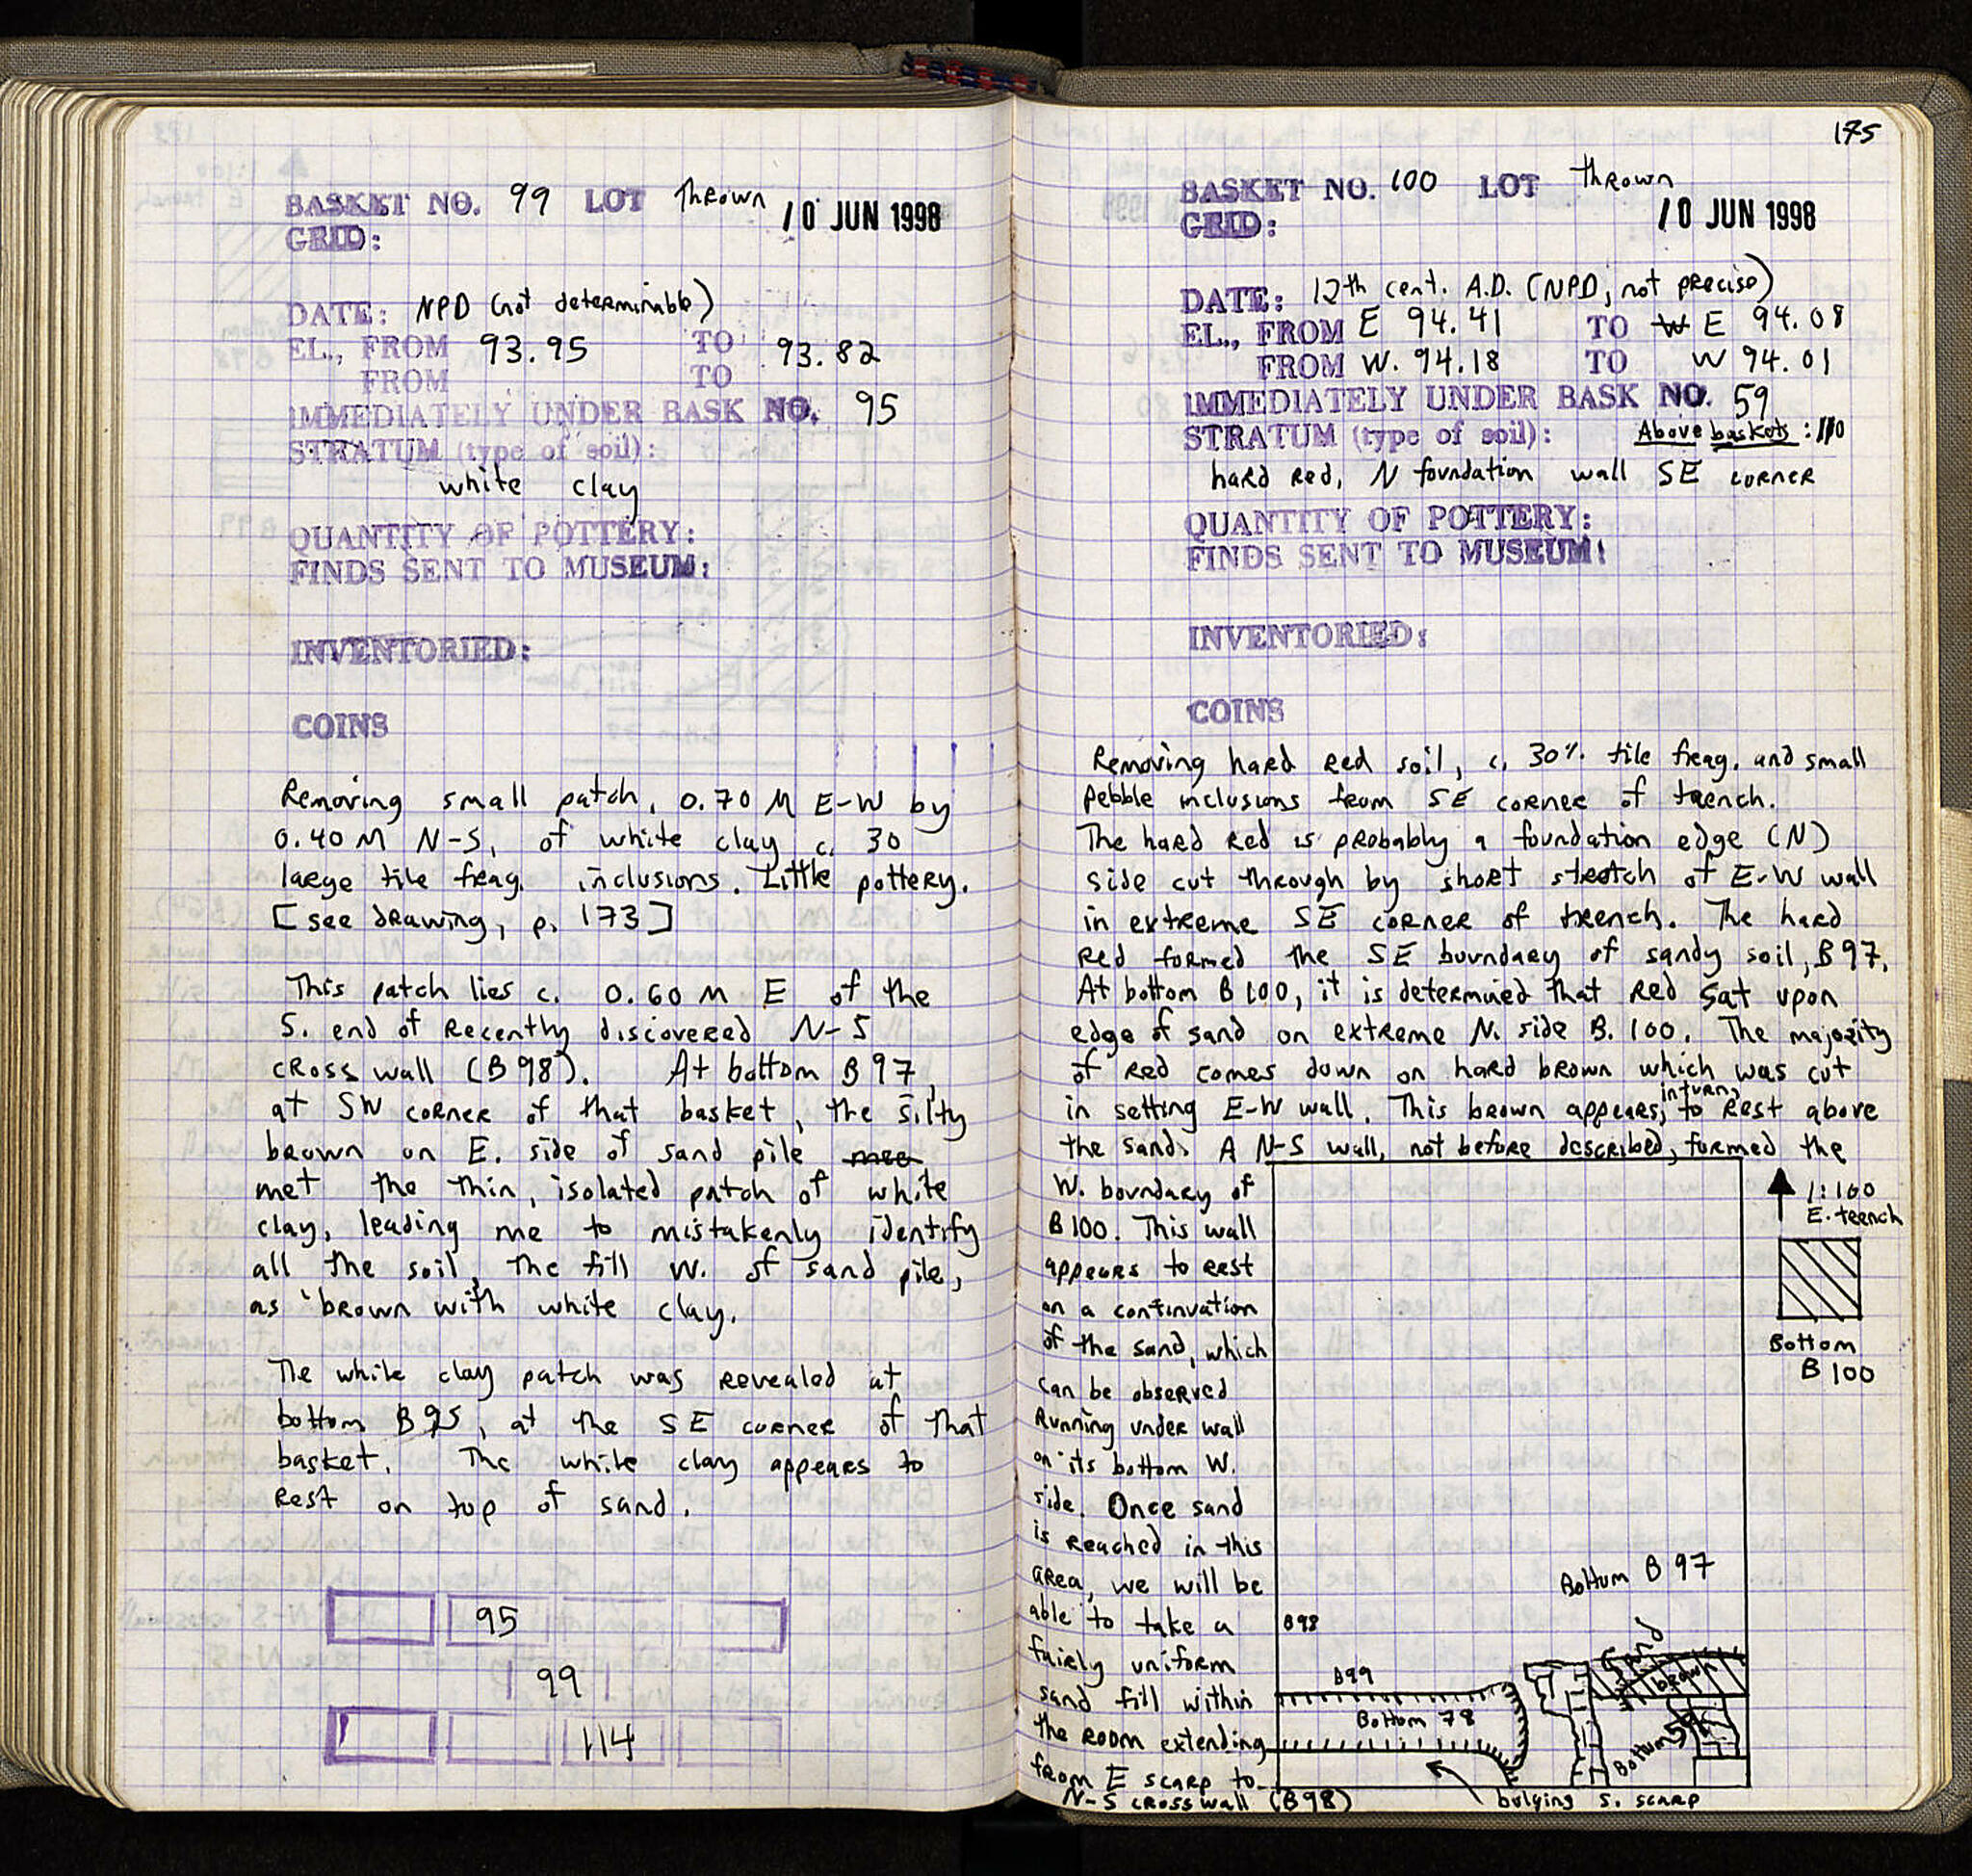 BASKET NO. 99 LOT Thrown
10 JUN 1998
GRID:
DATE: NPD (not determinable)
EL., FROM 93.95 TO 93.82
FROM TO
IMMEDIATELY UNDER BASK NO. 95
STRATUM (type of soil):
white clay
QUANTITY OF POTTERY:
FINDS SENT TO MUSEUM:
INVENTORIED:
COINS
Removing small patch, 0.70 M E-W by
0.40 M N-S, of white clay c. 30
large tile frag. inclusions. Little pottery.
[see drawing, p. 173]
This patch lies c. 0.60 M E of the
S. end of recently discovered N-S
cross wall (B98). At bottom B97,
at SW corner of that basket, the silty
brown on E. side of sand pile
met the thin, isolated patch of white
clay, leading me to mistakenly identify
all the soil, the fill W. of sand pile,
as brown with white clay.
The white clay patch was revealed at
bottom B95, at the SE corner of that
basket. The white clay appears to
rest on top of sand.
95
99
114
175
BASKET NO. 100 LOT thrown
10 JUN 1998
GRID:
DATE: 12th cent. A.D. (NPD; not precise)
EL., FROM E 94.41 TO W E 94.08
FROM W. 94.18 TO W 94.01
IMMEDIATELY UNDER BASK NO. 59
STRATUM (type of soil): Above baskets: 110
hard red, N foundation wall SE corner
QUANTITY OF POTTERY:
FINDS SENT TO MUSEUM:
INVENTORIED:
COINS
Removing hard red soil, c. 30% tile frag. and small
pebble inclusions from SE corner of trench.
The hard red is probably a foundation edge (N)
side cut through by short stretch of E-W wall
in extreme SE corner of trench. The hard
red formed the SE boundary of sandy soil, B97.
At bottom B100, it is determined that red sat upon
edge of sand on extreme N. side B. 100. The majority
of red comes down on hard brown which was cut
in setting E-W wall. This brown appears, in turn, to rest above
the sand. A N-S wall, not before described, formed the
W. boundary of
B100. This wall
appears to rest
on a continuation
of the sand, which
can be observed
running under wall
on its bottom W.
side. Once sand
is reached in this
area, we will be
able to take a
fairly uniform
sand fill within
the room extending
from E scarp to
N-S cross wall (B98)
1:100
E. trench
Bottom
B100
Bottom B97
B98
sand
B99
brown
Bottom 78
Bottom 59
bulging S. scarp